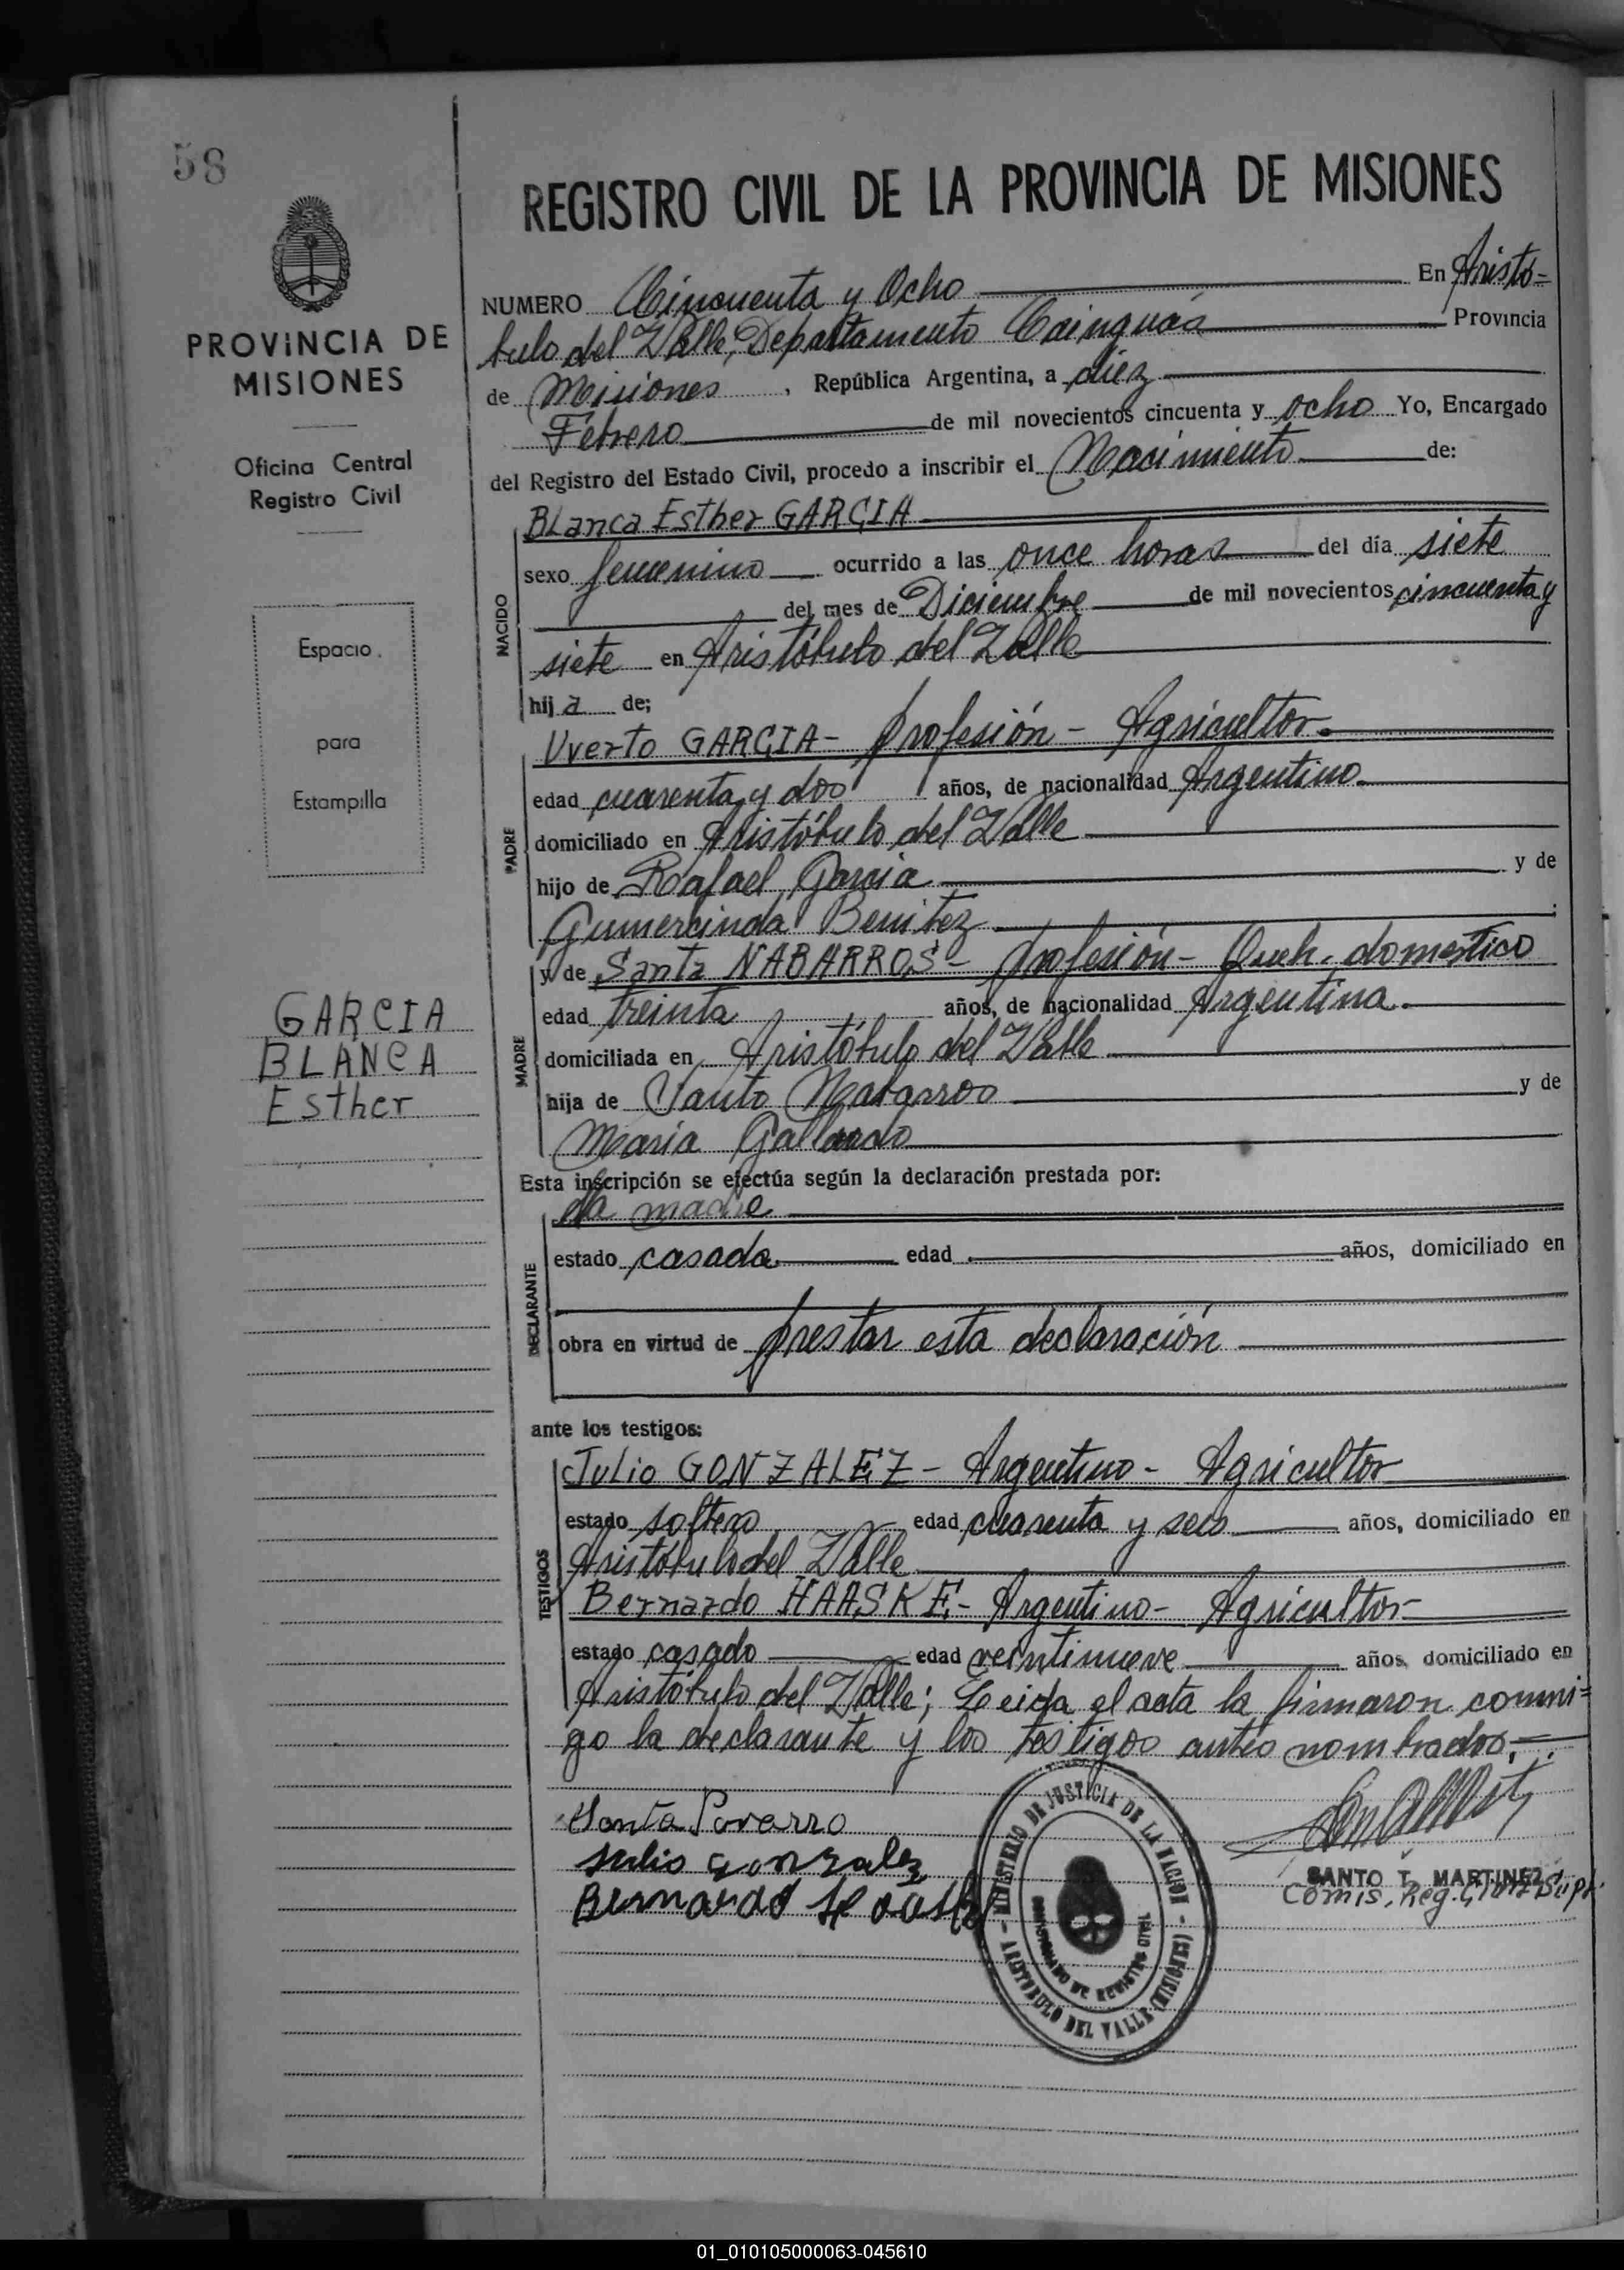 58
PROVINCIA DE
MISIONES
Oficina Central
Registro Civil
Espacio
para
Estampilla
GARCIA
BLANCA
Esther
REGISTRO CIVIL DE LA PROVINCIA DE MISIONES
NUMERO Cincuenta y Ocho En Aristó=
bulo del Valle, Departamento Cainguás Provincia
de Misiones, República Argentina, a diez
Febrero de mil novecientos cincuenta y ocho Yo, Encargado
del Registro del Estado Civil, procedo a inscribir el Nacimiento de:
NACIDO
BLanca Esther GARCIA
sexo femenino ocurrido a las once horas del día siete
del mes de Diciembre de mil novecientos cincuenta y
siete en Aristóbulo del Valle
hija de;
PADRE
Uverto GARCIA- profesión - Agricultor.
edad cuarenta y dos años, de nacionalidad Argentino.
domiciliado en Aristóbulo del Valle
hijo de Rafael Garcia y de
Gumercinda Benitez
MADRE
y de Santa NABARROS- profesión- Queh. domestico
edad treinta años, de nacionalidad Argentina.
domiciliada en Aristóbulo del Valle
hija de Santo Nabarros y de
Maria Gallardo
Esta inscripción se efectúa según la declaración prestada por:
DECLARANTE
la madre
estado casada edad años, domiciliado en
obra en virtud de prestar esta declaración
ante los testigos:
TESTIGOS
Julio GONZALEZ - Argentino - Agricultor
estado soltero edad cuarenta y seis años, domiciliado en
Aristóbulo del Valle
Bernardo HAASKE- Argentino- Agricultor-
estado casado edad veintinueve años, domiciliado en
Aristóbulo del Valle; Leida el acta la firmaron conmi=
go la declarante y los testigos antes nombrados.
Santa Navarro
Julio Gonzalez
Bernardo Haaske
MINISTERIO DE JUSTICIA DE LA NACION - ARISTOBULO DEL VALLE (MISIONES) -
SANTO T. MARTINEZ
Comis. Reg. Civil Supl.
01_010105000063-045610